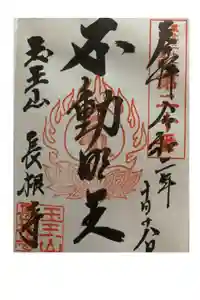 奉拝 令和二年
十月十八日
不動明王
玉王山
長根寺